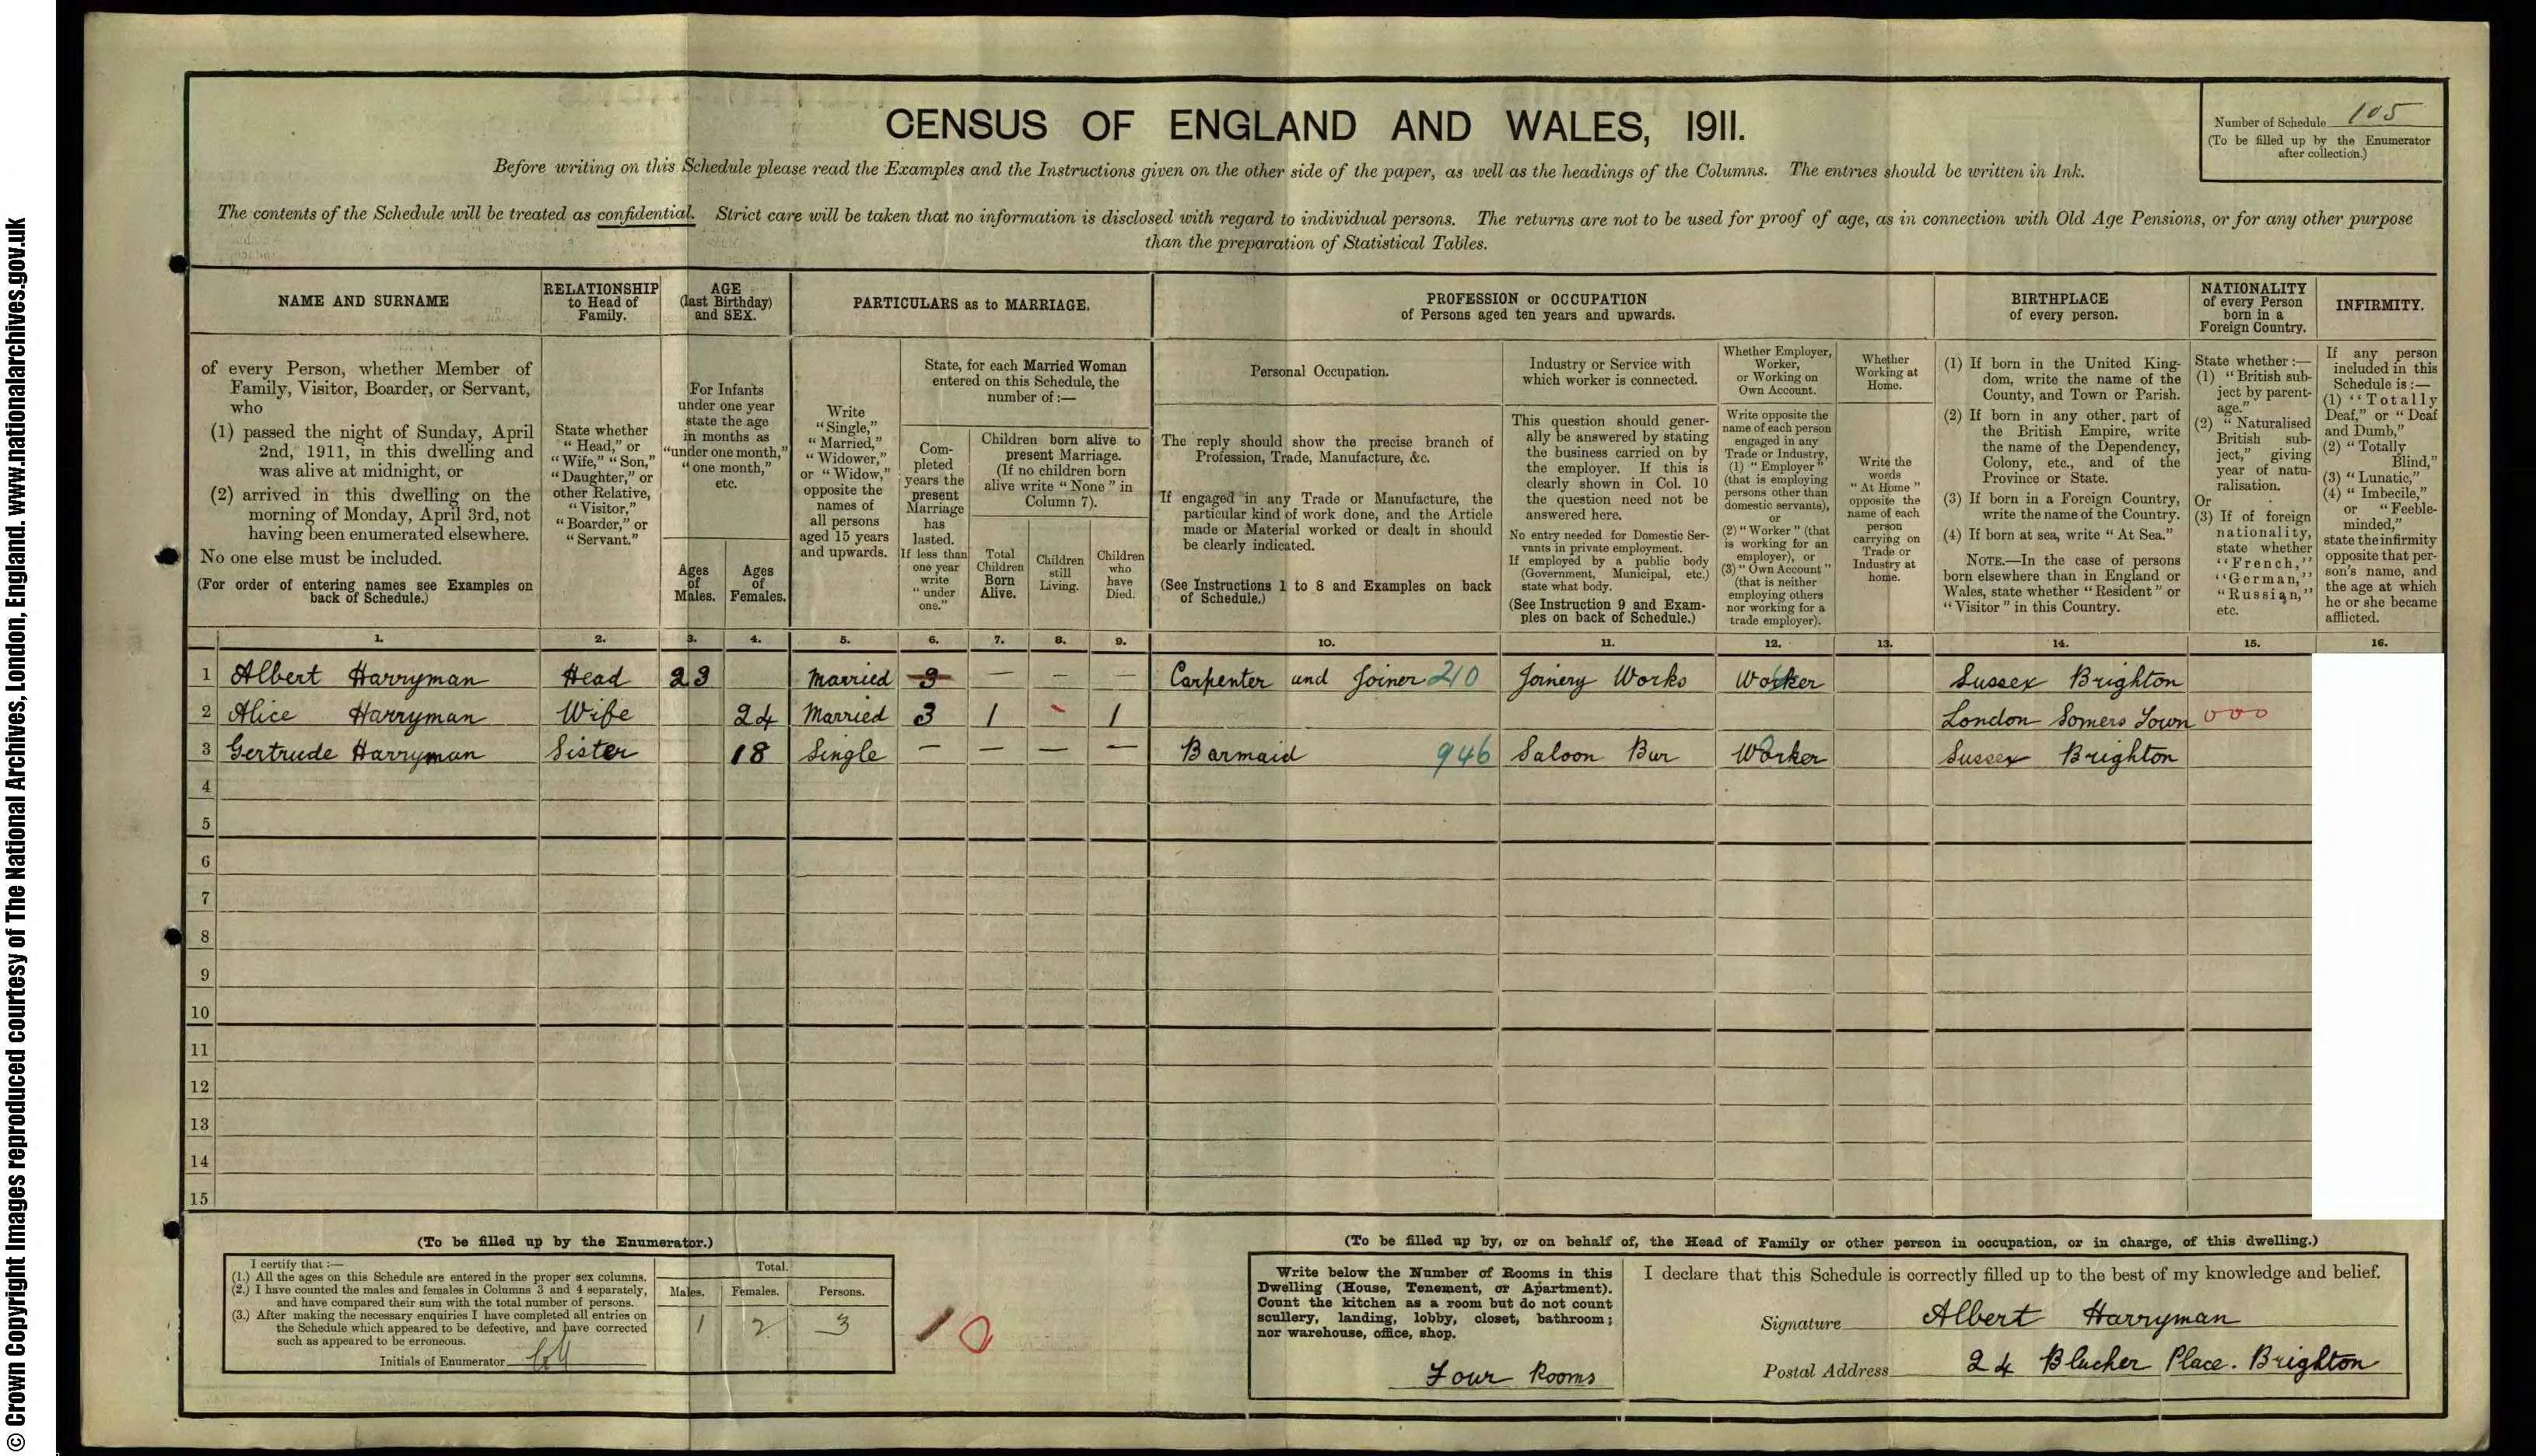 © Crown Copyright Images reproduced courtesy of The National Archives, London, England. www.nationalarchives.gov.uk
CENSUS OF ENGLAND AND WALES, 1911.
Number of Schedule 105
(To be filled up by the Enumerator
after collection.)
Before writing on this Schedule please read the Examples and the Instructions given on the other side of the paper, as well as the headings of the Columns. The entries should be written in Ink.
The contents of the Schedule will be treated as confidential. Strict care will be taken that no information is disclosed with regard to individual persons. The returns are not to be used for proof of age, as in connection with Old Age Pensions, or for any other purpose
than the preparation of Statistical Tables.
NAME AND SURNAME
of every Person, whether Member of
Family, Visitor, Boarder, or Servant,
who
(1) passed the night of Sunday, April
2nd, 1911, in this dwelling and
was alive at midnight, or
(2) arrived in this dwelling on the
morning of Monday, April 3rd, not
having been enumerated elsewhere.
No one else must be included.
(For order of entering names see Examples on
back of Schedule.)
RELATIONSHIP
to Head of
Family.
State whether
"Head," or
"Wife," "Son,"
"Daughter," or
other Relative,
"Visitor,"
"Boarder," or
"Servant."
AGE
(last Birthday)
and SEX.
For Infants
under one year
state the age
in months as
"under one month,"
"one month,"
etc.
Ages
of
Males.
Ages
of
Females.
PARTICULARS as to MARRIAGE.
Write
"Single,"
"Married,"
"Widower,"
or "Widow,"
opposite the
names of
all persons
aged 15 years
and upwards.
State, for each Married Woman
entered on this Schedule, the
number of:—
Com-
pleted
years the
present
Marriage
has
lasted.
If less than
one year
write
"under
one."
Children born alive to
present Marriage.
(If no children born
alive write "None" in
Column 7).
Total
Children
Born
Alive.
Children
still
Living.
Children
who
have
Died.
PROFESSION or OCCUPATION
of Persons aged ten years and upwards.
Personal Occupation.
The reply should show the precise branch of
Profession, Trade, Manufacture, &c.
If engaged in any Trade or Manufacture, the
particular kind of work done, and the Article
made or Material worked or dealt in should
be clearly indicated.
(See Instructions 1 to 8 and Examples on back
of Schedule.)
Industry or Service with
which worker is connected.
This question should gener-
ally be answered by stating
the business carried on by
the employer. If this is
clearly shown in Col. 10
the question need not be
answered here.
No entry needed for Domestic Ser-
vants in private employment.
If employed by a public body
(Government, Municipal, etc.)
state what body.
(See Instruction 9 and Exam-
ples on back of Schedule.)
Whether Employer,
Worker,
or Working on
Own Account.
Write opposite the
name of each person
engaged in any
Trade or Industry,
(1) "Employer"
(that is employing
persons other than
domestic servants),
or
(2) "Worker" (that
is working for an
employer), or
(3) "Own Account"
(that is neither
employing others
nor working for a
trade employer).
Whether
Working at
Home.
Write the
words
"At Home"
opposite the
name of each
person
carrying on
Trade or
Industry at
home.
BIRTHPLACE
of every person.
(1) If born in the United King-
dom, write the name of the
County, and Town or Parish.
(2) If born in any other part of
the British Empire, write
the name of the Dependency,
Colony, etc., and of the
Province or State.
(3) If born in a Foreign Country,
write the name of the Country.
(4) If born at sea, write "At Sea."
NOTE.—In the case of persons
born elsewhere than in England or
Wales, state whether "Resident" or
"Visitor" in this Country.
NATIONALITY
of every Person
born in a
Foreign Country.
State whether:—
(1) "British sub-
ject by parent-
age."
(2) "Naturalised
British sub-
ject," giving
year of natu-
ralisation.
Or
(3) If of foreign
nationality,
state whether
"French,"
"German,"
"Russian,"
etc.
INFIRMITY.
If any person
included in this
Schedule is:—
(1) "Totally
Deaf," or "Deaf
and Dumb,"
(2) "Totally
Blind,"
(3) "Lunatic,"
(4) "Imbecile,"
or "Feeble-
minded,"
state the infirmity
opposite that per-
son's name, and
the age at which
he or she became
afflicted.
1. 2. 3. 4. 5. 6. 7. 8. 9. 10. 11. 12. 13. 14. 15. 16.
1 Albert Harryman Head 23 Married 3 — — — Carpenter and Joiner 210 Joinery Works Worker Sussex Brighton
2 Alice Harryman Wife 24 Married 3 1 - 1 London Somers Town 000
3 Gertrude Harryman Sister 18 Single — — — — Barmaid 946 Saloon Bar Worker Sussex Brighton
4
5
6
7
8
9
10
11
12
13
14
15
(To be filled up by the Enumerator.)
I certify that:—
(1.) All the ages on this Schedule are entered in the proper sex columns.
(2.) I have counted the males and females in Columns 3 and 4 separately,
and have compared their sum with the total number of persons.
(3.) After making the necessary enquiries I have completed all entries on
the Schedule which appeared to be defective, and have corrected
such as appeared to be erroneous.
Initials of Enumerator
Total.
Males. Females. Persons.
1 2 3
10
(To be filled up by, or on behalf of, the Head of Family or other person in occupation, or in charge, of this dwelling.)
Write below the Number of Rooms in this
Dwelling (House, Tenement, or Apartment).
Count the kitchen as a room but do not count
scullery, landing, lobby, closet, bathroom;
nor warehouse, office, shop.
Four Rooms
I declare that this Schedule is correctly filled up to the best of my knowledge and belief.
Signature Albert Harryman
Postal Address 24 Blucher Place. Brighton